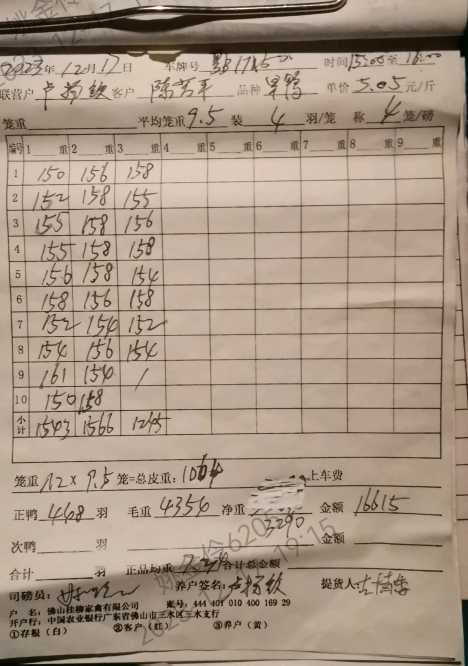 2023年12月17日 车牌号 时间15:05至16:00
联营户 客户 品种 单价5.05元/斤
笼重 平均笼重9.5 装 4 羽/笼 称 4 笼/磅
编号 1 重 2 重 3 重 4 重 5 重 6 重 7 重 8 重 9 重
1 150 156 158
2 152 158 155
3 155 158 156
4 155 158 158
5 156 158 154
6 158 156 158
7 152 154 152
8 154 156 154
9 161 154 /
10 150 158
小计 1543 1566 1245
笼重 112 × 9.5 笼=总皮重: 1064 上车费
正鸭 448 羽 毛重 4354 净重 3290 金额 16615
次鸭 羽 金额
合计 羽 正品均重 合计总金额
司磅员: 养户签名: 提货人
户 名: 佛山桂柳家禽有限公司 账号: 444 401 010 400 169 29
开户行: 中国农业银行广东省佛山市三水区三水支行
①存根(白) ②客户(红) ③养户(黄)